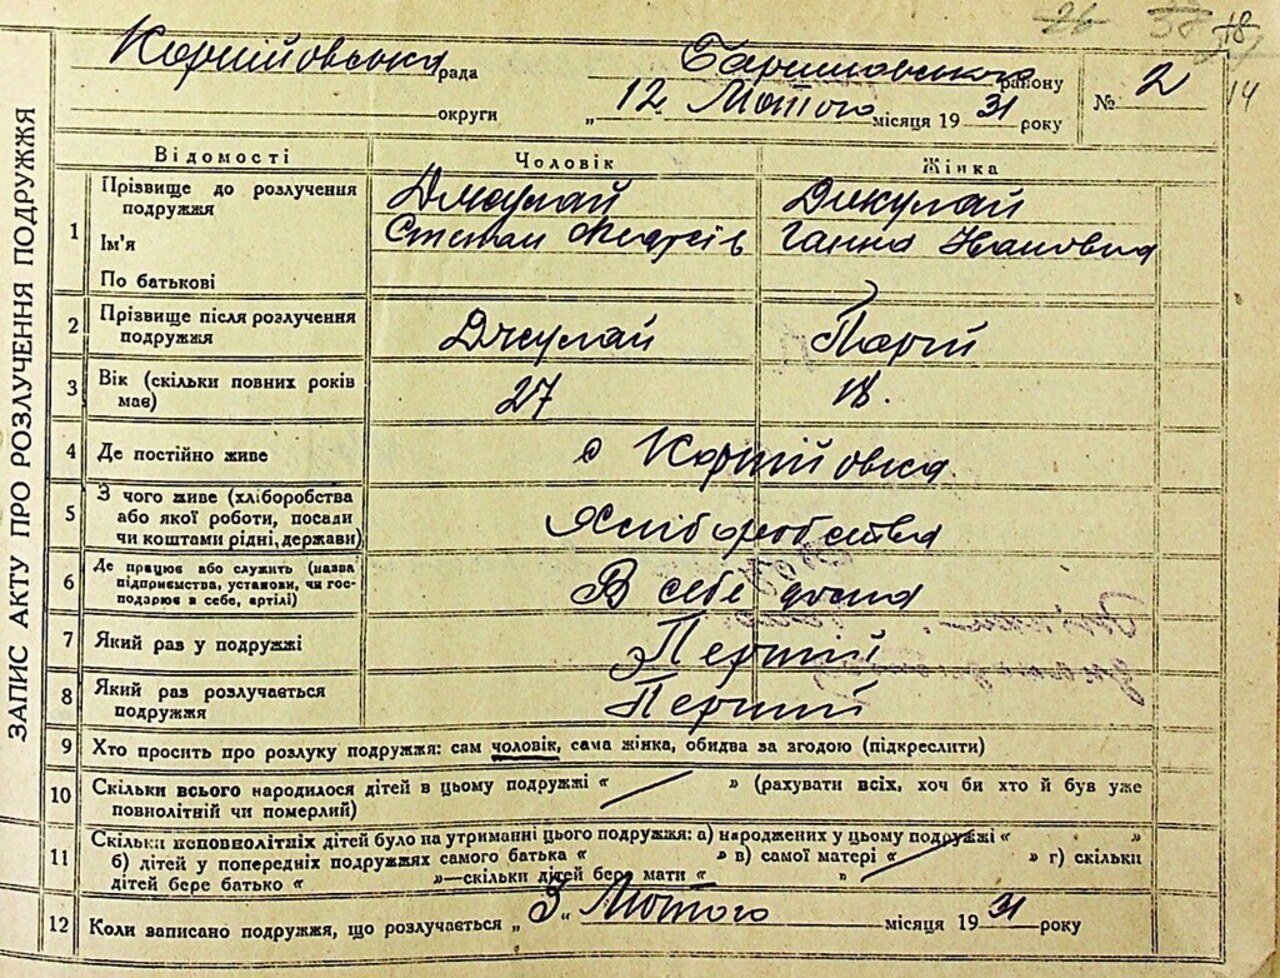 18
14
ЗАПИС АКТУ ПРО РОЗЛУЧЕННЯ ПОДРУЖЖЯ
Корнійовська рада району
№ 2
округи „12 Лютого місяця 1931 року
Відомості Чоловік Жінка
1 Прізвище до розлучення подружжя
Ім'я Степан Ганна Івановна
По батькові
2 Прізвище після розлучення подружжя Джулай Парій
3 Вік (скільки повних років має) 27 18.
4 Де постійно живе с Корнійовка
5 З чого живе (хліборобства або якої роботи, посади чи коштами рідні, держави) Хліборобства
6 Де працює або служить (назва підприємства, установи, чи господарює в себе, артілі) В себе дома
7 Який раз у подружжі Перший
8 Який раз розлучається подружжя Перший
9 Хто просить про розлуку подружжя: сам чоловік, сама жінка, обидва за згодою (підкреслити)
10 Скільки всього народилося дітей в цьому подружжі « » (рахувати всіх, хоч би хто й був уже
повнолітній чи померлий)
11 Скільки неповнолітніх дітей було на утриманні цього подружжя: а) народжених у цьому подружжі « »
б) дітей у попередніх подружжях самого батька « » в) самої матері « » г) скільки
дітей бере батько « »—скільки дітей бере мати « »
12 Коли записано подружжя, що розлучається „3„ Лютого місяця 1931 року